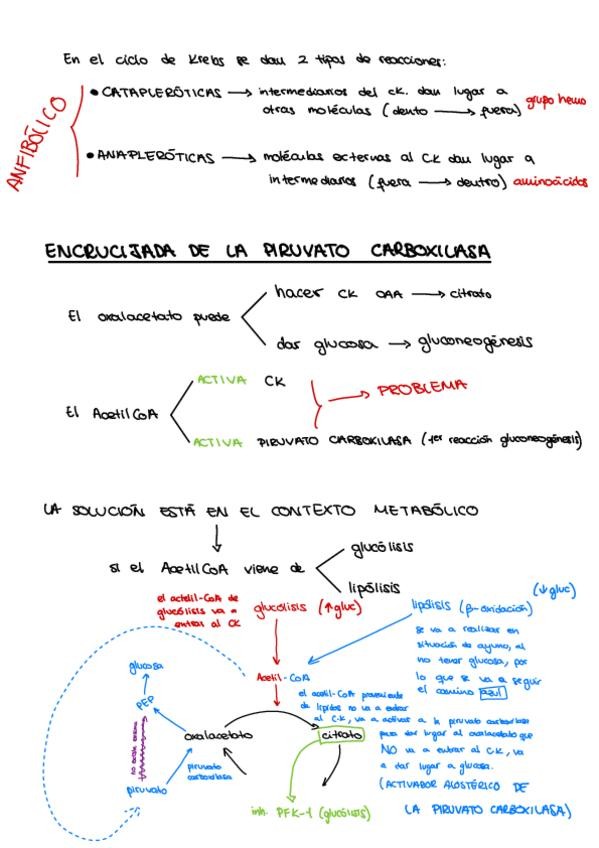 En el ciclo de Krebs se dan 2 tipos de reacciones:
ANFIBÓLICO
• CATAPLERÓTICAS → intermediarios del CK. dan lugar a
otras moléculas (dento → fuera) grupo hemo
• ANAPLERÓTICAS → moléculas externas al CK dan lugar a
intermediarios (fuera → dentro) aminoácidos
ENCRUCIJADA DE LA PIRUVATO CARBOXILASA
hacer CK OAA → citrato
El oxalacetato puede
dar glucosa → gluconeogénesis
ACTIVA CK
PROBLEMA
El Acetil CoA
ACTIVA PIRUVATO CARBOXILASA (1er reacción gluconeogénesis)
LA SOLUCIÓN ESTÁ EN EL CONTEXTO METABÓLICO
glucólisis
si el Acetil CoA viene de
lipólisis
el acetil-CoA de
glucólisis va a
entrar al CK
glucólisis (↑gluc)
lipólisis (β-oxidación)
(↓gluc)
se va a realizar en
situación de ayuno, al
no tener glucosa, por
lo que se va a seguir
el camino azul
glucosa
PEP
no existe enzima
piruvato
piruvato
carboxilasa
oxalacetato
Acetil-CoA
citrato
el acetil-CoA proveniente
de lípidos no va a entrar
al C.K, va a activar a la piruvato carboxilasa
para dar lugar al oxalacetato que
NO va a entrar al C.K, va
a dar lugar a glucosa.
(ACTIVADOR ALOSTÉRICO DE
LA PIRUVATO CARBOXILASA)
inh. PFK-1 (glucólisis)